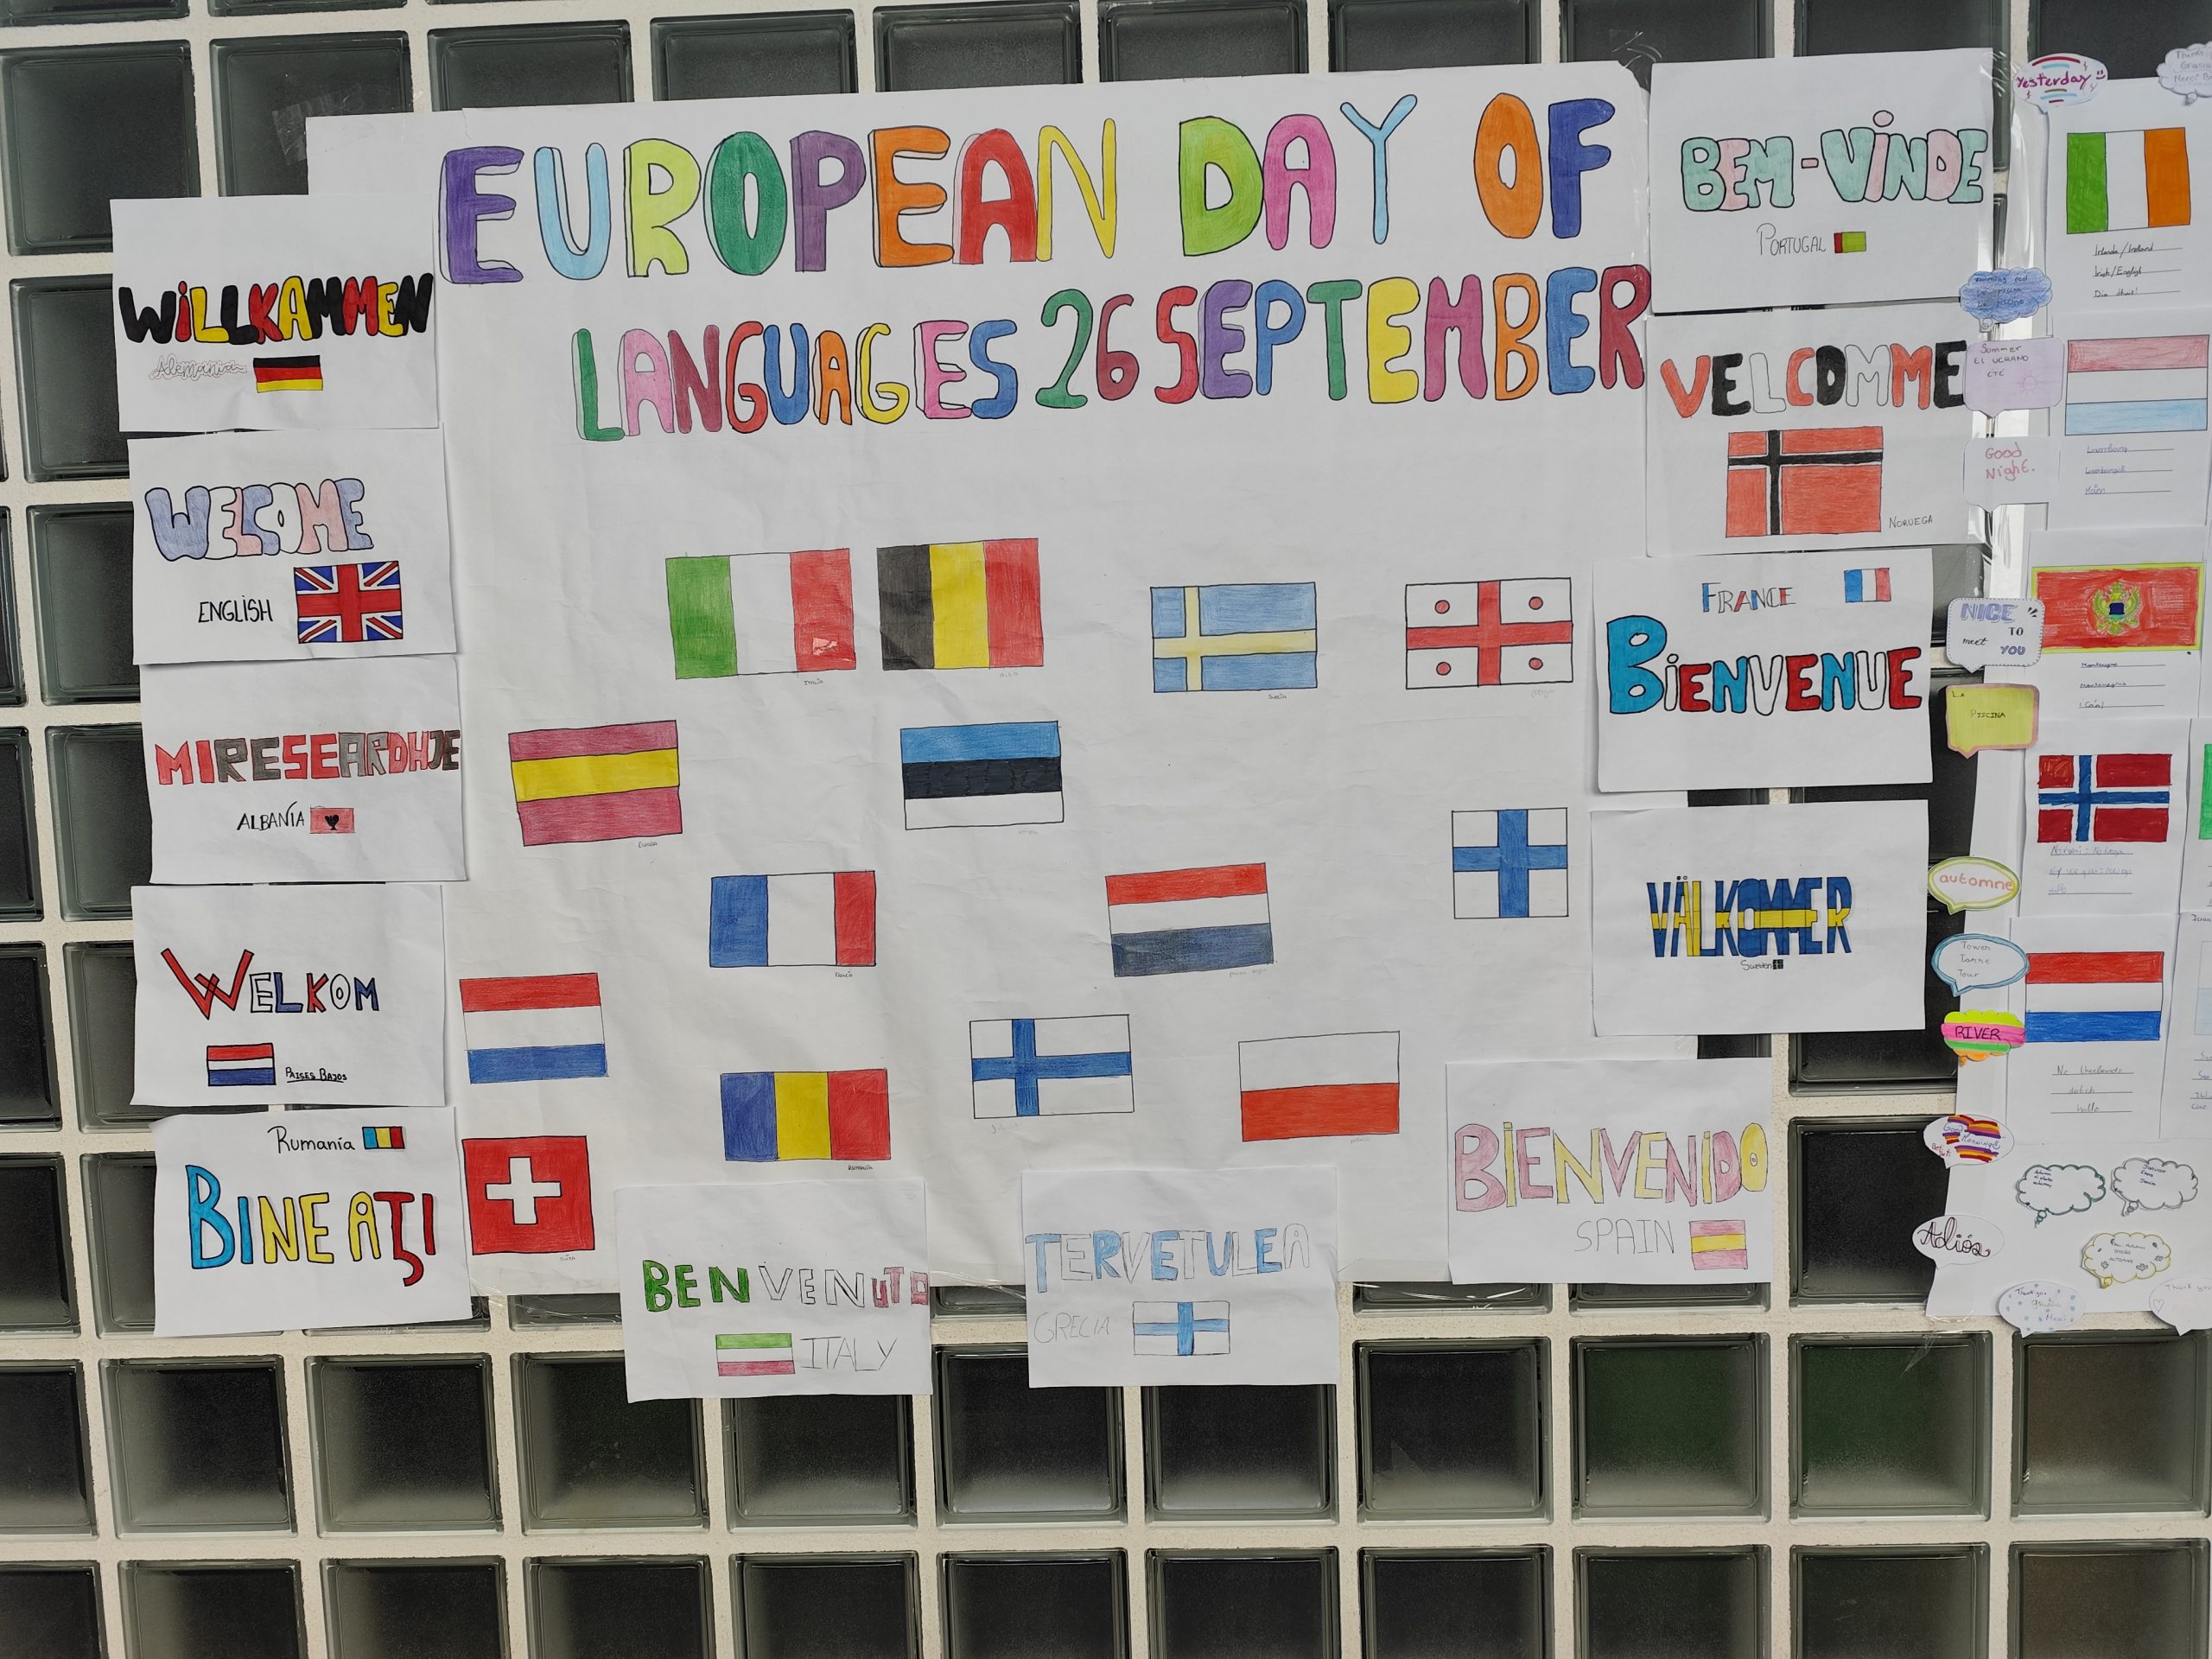 EUROPEAN DAY OF
LANGUAGES 26 SEPTEMBER
WiLLKAMMEN
Alemania
WELCOME
ENGLISH
MIRESEARDHJE
ALBANÍA
WELKOM
PAISES BAJOS
Rumanía
BINE AŢI
BENVENUTO
ITALY
TERVETULEA
GRECIA
BiENVENIDO
SPAIN
BEM-ViNDE
PORTUGAL
VELCOMME
NORUEGA
FRANCE
BiENVENUE
VÄLKOMMER
Sweden
Italia
Suecia
España
Francia
Rumanía
Suiza
Yesterday
Summer
EL VERANO
ETE
Good
Night.
NICE
TO
meet
YOU
La
PISCINA
automne
Tower
Torre
Tour
RIVER
Good
Adiós
Irlanda/Ireland
Irish/English
Dia dhuit!